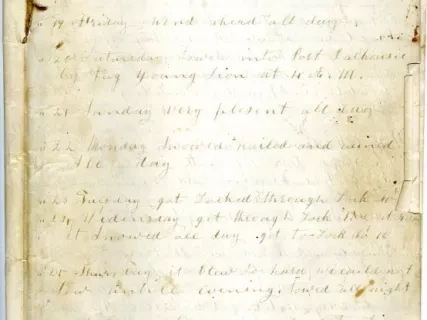 " 19 Friday wind ahead all day
" 20 Saturday towed into Port Dalhousie
by Tug Young Lion at 4 A. M.
" 21 Sunday very plesent all day
" 22 Monday Snowed hailed and rained
all day
" 23 Tuesday got Locked through Lock
" 24 Wednesday got through Lock at
it Snowed all day got to Lock no
" 25 Thursday it blow So hard we could not
tow untill evening. towed all night